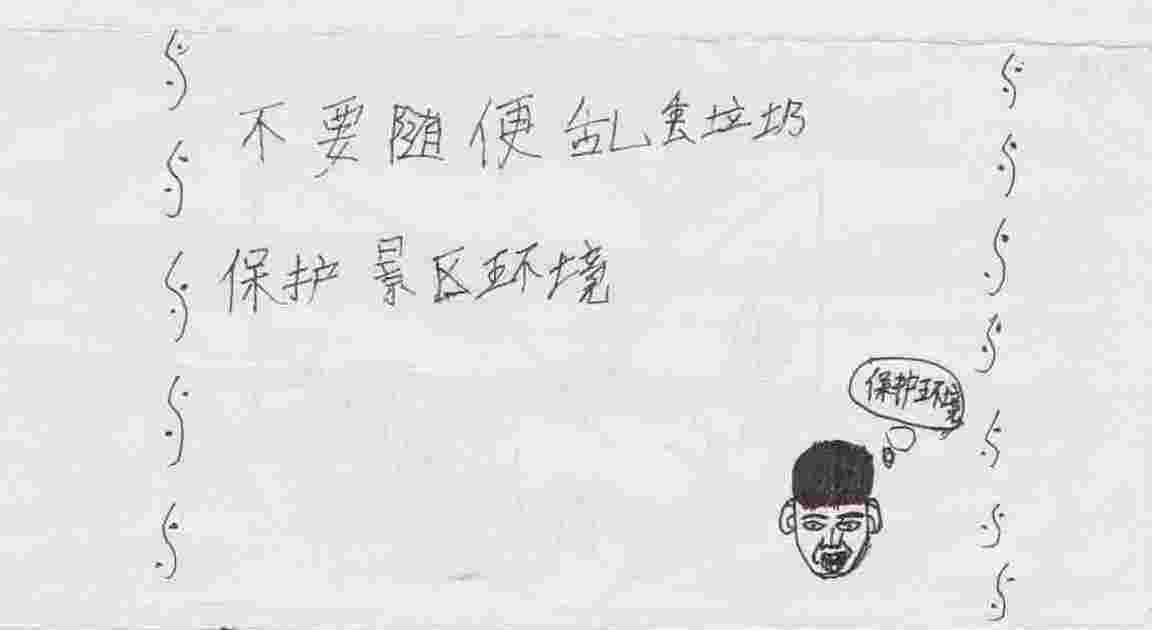 不要随便乱丢垃圾
保护景区环境
保护环境